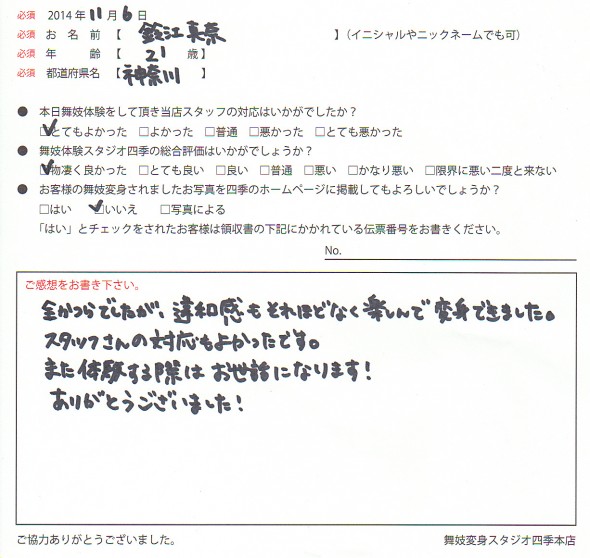 必須 2014 年 11 月 6 日
必須 お 名 前 【 鈴江 真奈 】(イニシャルやニックネームでも可)
必須 年 齢 【 21 歳】
必須 都道府県名 【神奈川 】
● 本日舞妓体験をして頂き当店スタッフの対応はいかがでしたか?
☑とてもよかった □よかった □普通 □悪かった □とても悪かった
● 舞妓体験スタジオ四季の総合評価はいかがでしょうか?
☑物凄く良かった □とても良い □良い □普通 □悪い □かなり悪い □限界に悪い二度と来ない
● お客様の舞妓変身されましたお写真を四季のホームページに掲載してもよろしいでしょうか?
□はい ☑いいえ □写真による
「はい」とチェックをされたお客様は領収書の下記にかかれている伝票番号をお書きください。
No.
ご感想をお書き下さい。
全かつらでしたが、違和感もそれほどなく楽しんで変身できました。
スタッフさんの対応もよかったです。
また体験する際はお世話になります!
ありがとうございました!
ご協力ありがとうございました。 舞妓変身スタジオ四季本店